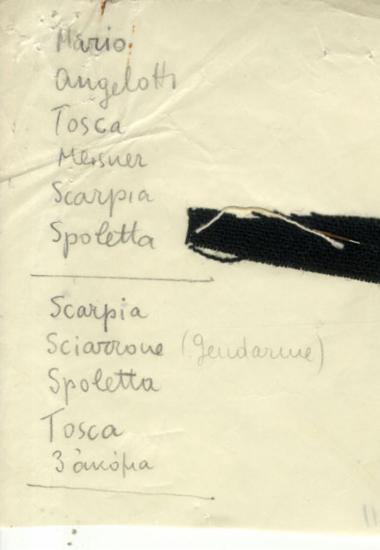 Mario
Angelotti
Tosca
Meisner
Scarpia
Spoletta
Scarpia
Sciarrone (Gendarme)
Spoletta
Tosca
3 ἀκόμα
11